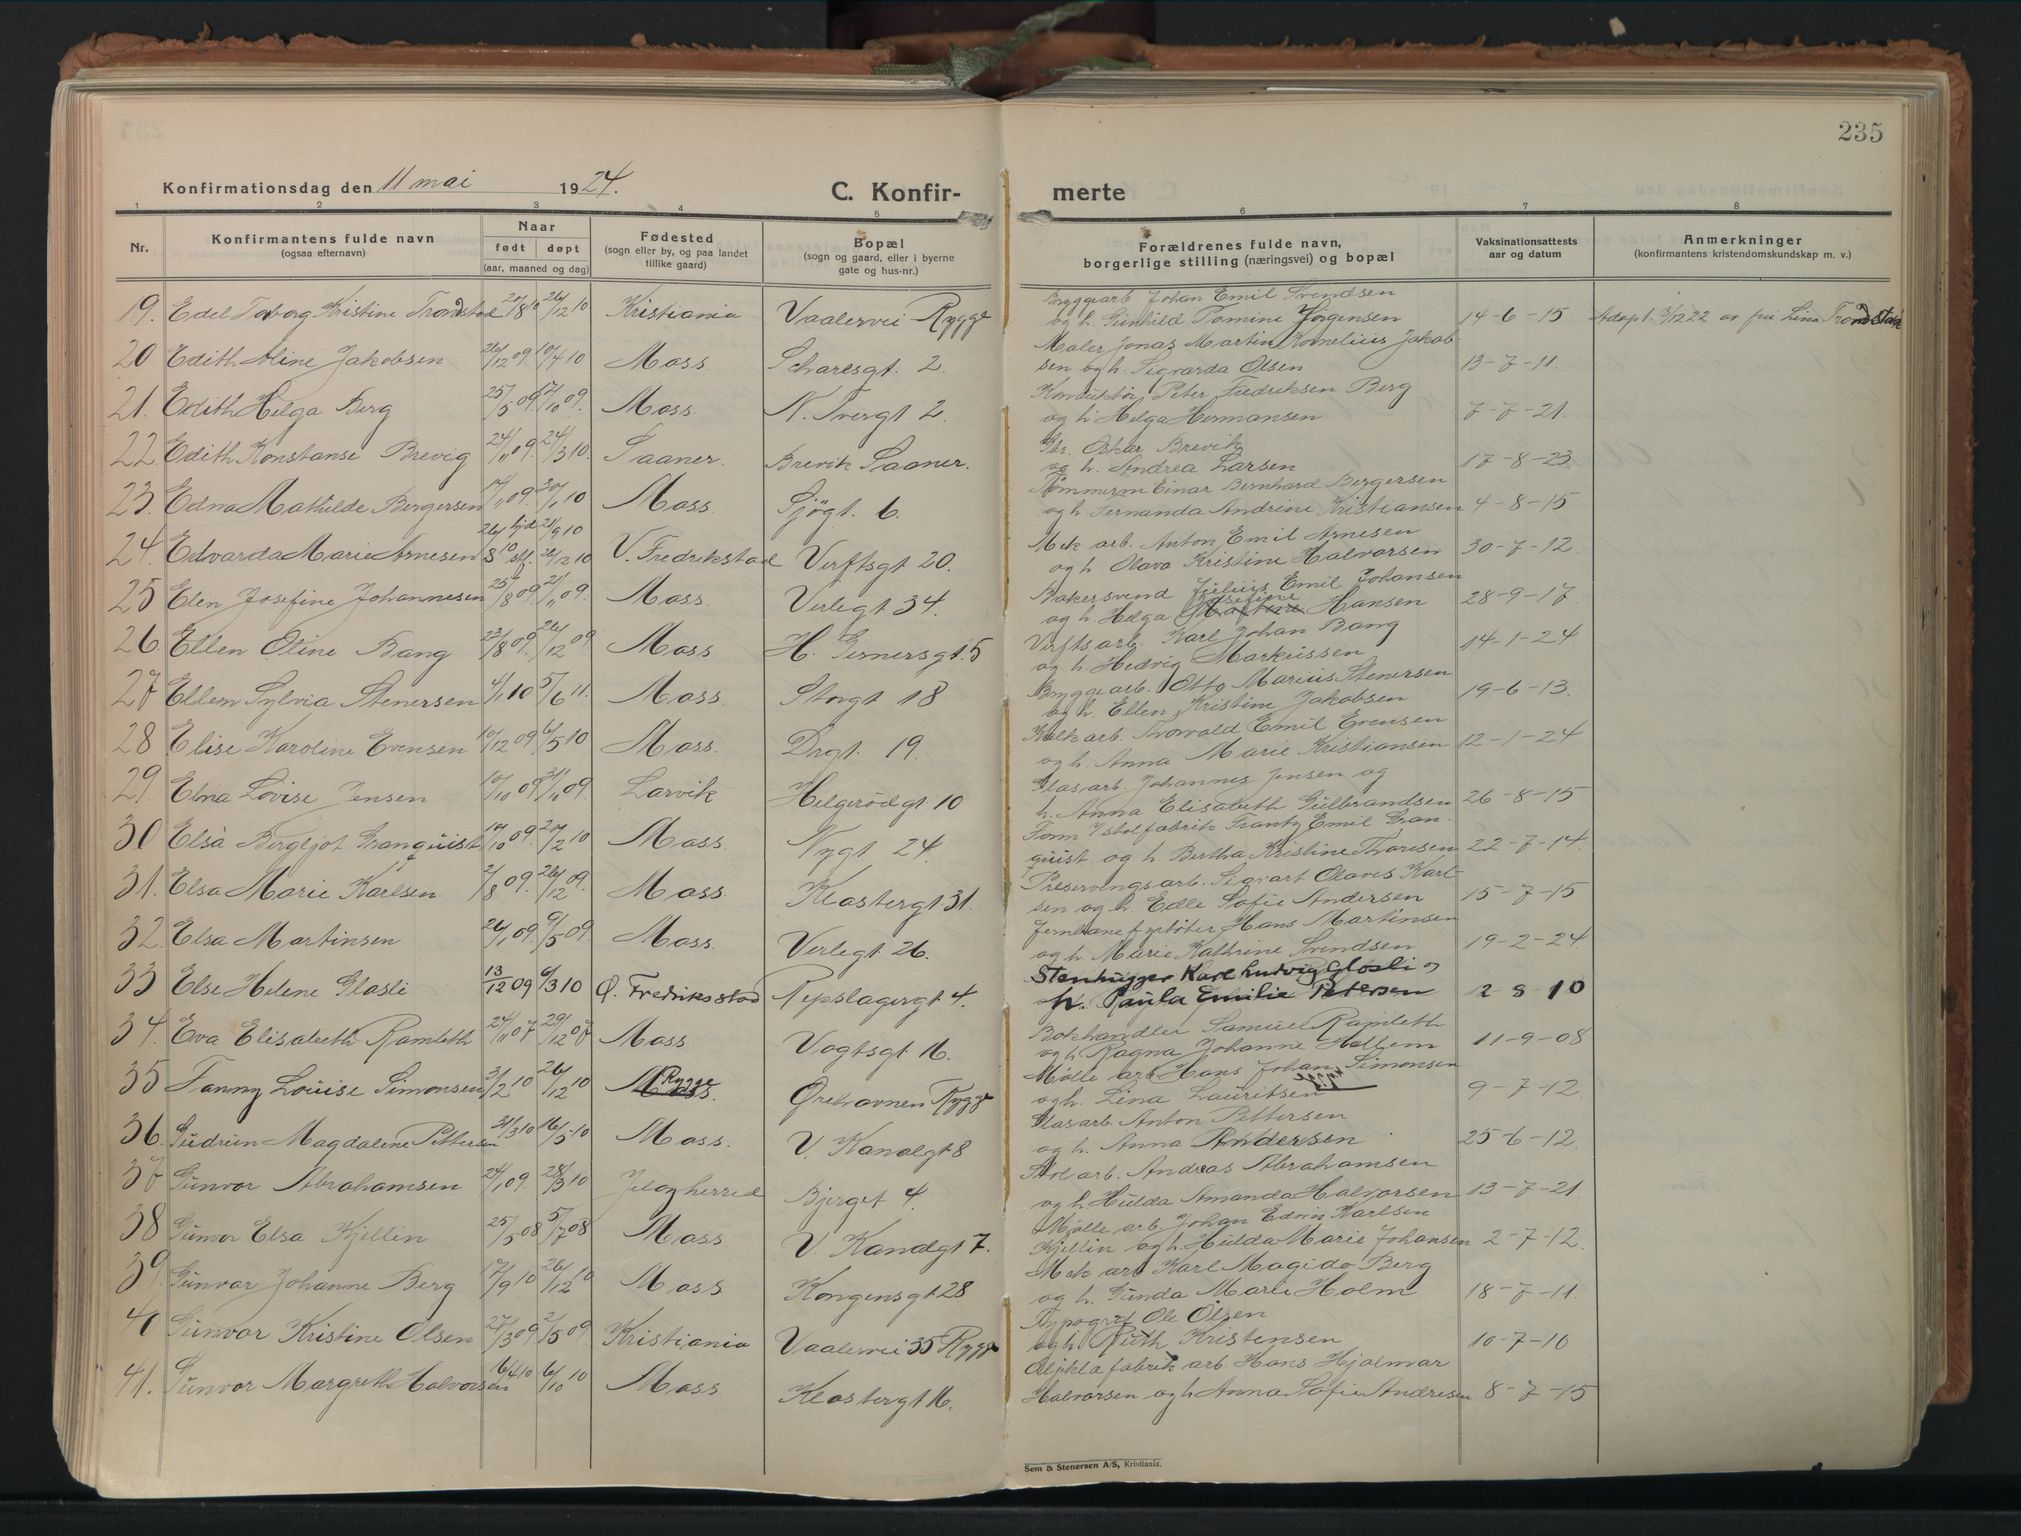 235
Konfirmationsdag den 11 mai 1924.
C. Konfir-merte
1 2 3 4 5 6 7 8
Nr.
Konfirmantens fulde navn
(ogsaa efternavn)
Naar
født døpt
(aar, maaned og dag)
Fødested
(sogn eller by, og paa landet
tillike gaard)
Bopæl
(sogn og gaard, eller i byerne
gate og hus-nr.)
Forældrenes fulde navn,
borgerlige stilling (næringsvei) og bopæl
Vaksinationsattests
aar og datum
Anmerkninger
(konfirmantens kristendomskundskap m. v.)
19. Edel Kristine Tronstad 8/10 26/12 10 Kristiania Vaalervei Rygge Bryggearb. Johan Emil Svendsen
og h. Gunhild Jørgensen 14-6-15 Adopt. av fru Lina Tronstad
20 Edith Aline Jakobsen 26/12 09 10/4 10 Moss. Scharesgt. 2. Maler Jonas Martin Kornelius Jakob-
sen og h. Sigvarda Olsen 13-7-11.
21. Edith Helga Berg 25/5 09. 17/10 09. Moss. N. Tvergt 2. Konduktør Peter Fredriksen Berg
og h. Helga Hermansen 7-7-21.
22. Edith Konstanse Brevig 24/11 09. 24/3 10. Saaner. Brevik Saaner. Oskar Brevik
og h. Andrea Larsen 17-8-23
23. Edna Mathilde Bergersen 14/11 09. 30/1 10 Moss. Sjøgt. 6. Tømmerm Einar Bernhard Bergersen
og h. Fernanda Andrine Kristiansen 4-8-15
24. Edvarda Marie Arnesen 26/12 10 V. Fredrikstad Verftsgt 20. Mek arb. Anton Emil Arnesen
og h. Olava Kristine Halvorsen 30-7-12.
25 Elen Josefine Johannesen 25/8 09. 21/11 09. Moss. Verlegt 34. Bakersvend Julius Emil Johansen
og h. Helga Josefine Hansen 28-9-17.
26. Ellen Oline Bang 23/8 09. 26/12 09 Moss H. Gernersgt. 5 Verftsarb. Karl Johan Bang
og h. Hedvig Markussen 14-1-24
27 Ellen Sylvia Stenersen 4/1 10 5/6 11. Moss. Storgt 18 Bryggearb. Otto Marius Stenersen
og h. Ellen Kristine Jakobsen 19-6-13.
28 Elise Karoline Evensen 10/12 09 6/5 10 Moss. Drgt. 19. Kulk arb. Torvald Emil Evensen
og h. Anna Marie Kristiansen 12-1-24.
29. Elna Lovise Jensen 10/10 09 31/10 09. Larvik Helgerødgt 10 Glasarb. Johannes Jensen og
h. Anna Elisabeth Gulbrandsen 26-8-15
30 Elsa Bergljot Granquist 10/10 09. 20/2 10 Moss. Nygt 24. Form. Frantz Emil Gran-
quist og h. Bertha Kristine Thoresen 22-7-14.
31. Elsa Marie Karlsen 2/8 09. 26/12 09. Moss. Klostergt 31. Preservingsarb. Sigvart Olavis Karl-
sen og h. Edle Sofie Andersen 15-7-15
32. Elsa Martinsen 24/1 09. 9/5 09. Moss. Verlegt 26. Hans Martinsen
og h. Marie Kathrine Svendsen 19-2-24
33 Else Helene Glosli 13/12 09 6/3 10 Ø. Fredriksstad Repslagergt 4. Stenhugger Karl Ludvig Glosli og
h. Paula Emilie Petersen 2 8 10
34. Eva Elisabeth Ramleth 24/11 07 29/12 07 Moss Vogtsgt 16. Bokhandler Samuel Ramleth
og h. Ragna Johanne Holtem 11-9-08
35 Fanny Louise Simonsen 3/2 10 26/12 10 Moss. Rygge Ørehavnen Rygge Mølle arb Hans Johan Simonsen
og h. Lina Lauritsen 9-7-12.
36. Gudrun Magdalene Pettersen 31/3 10 16/5 10 Moss. V. Kanalgt 8 Glasarb. Anton Pettersen
og h. Anna Andersen 25-6-12.
37 Gunvor Abrahamsen 24/1 09 28/3 10 Jeløy herred Bjerget 4. arb. Andreas Abrahamsen
og h. Hulda Amanda Halvorsen 13-7-21
38 Gunvor Elsa Kjellin 25/5 08 5/7 08 Moss V. Kanalgt 7. Mølle arb. Johan Edvin Karlsen
Kjellin og h. Hulda Marie Johansen 2-7-12.
39. Gunvor Johanne Berg 17/9 10 26/12 10 Moss Kongensgt 28 Mek arb Karl Magido Berg
og h. Gunda Marie Holm 18-7-11.
40 Gunvor Kristine Olsen 27/3 09 2/5 09 Kristiania Vaalervei 35 Rygge Typograf Ole Olsen
og h. Ruth Kristensen 10-7-10
41. Gunvor Margreth Halvorsen 6/4 10 6/10 10 Moss. Klostergt 16. fabrik arb. Hans Hjalmar
Halvorsen og h. Anna Sofie Andresen 8-7-15
Sem & Stenersen A/S, Kristiania.